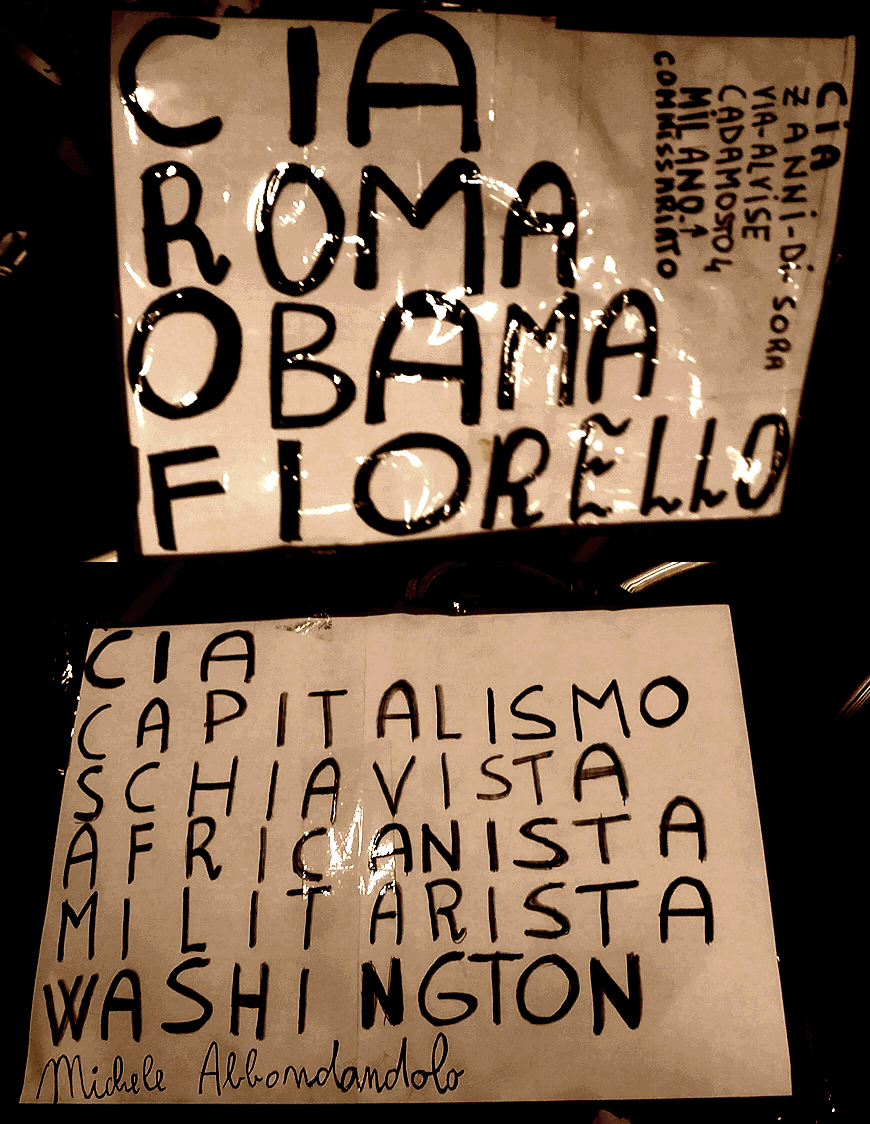 CIA
ROMA
OBAMA
FIORELLO
CIA
ZANNI-Di SORA
VIA-ALVISE
CADAMOSTO 4
MILANO.↑
COMMISSARIATO
CIA
CAPITALISMO
SCHIAVISTA
AFRICANISTA
MILITARISTA
WASHINGTON
Michele Abbondandolo